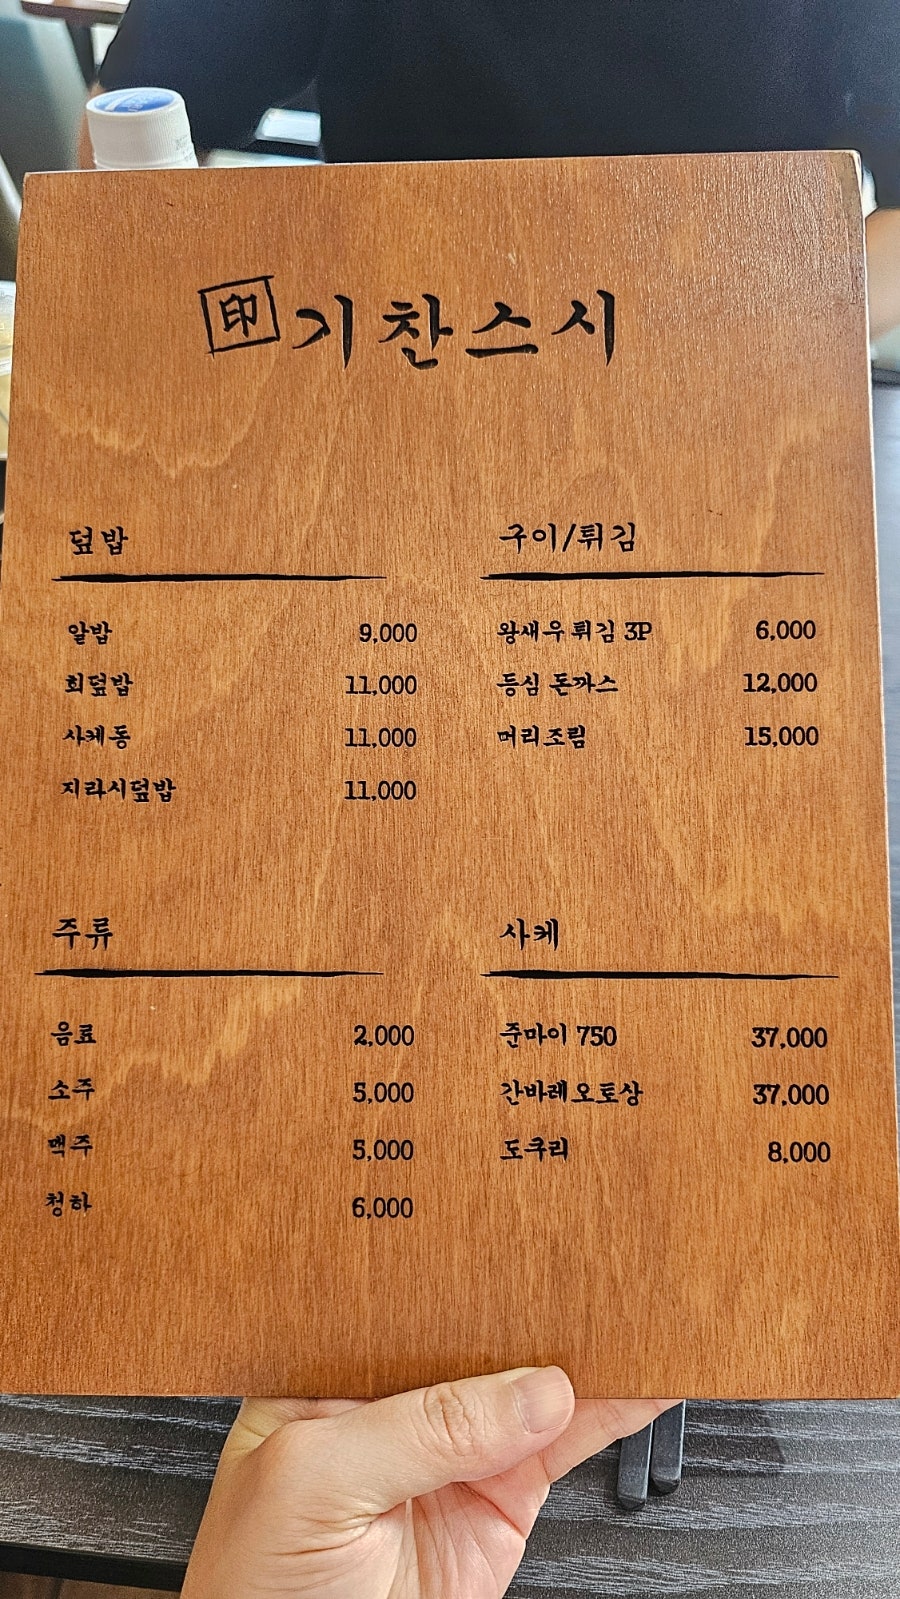 印 기찬스시
덮밥
알밥 9,000
회덮밥 11,000
사케동 11,000
지라시덮밥 11,000
구이/튀김
왕새우튀김 3P 6,000
등심 돈까스 12,000
머리조림 15,000
주류
음료 2,000
소주 5,000
맥주 5,000
청하 6,000
사케
준마이 750 37,000
간바레오토상 37,000
도쿠리 8,000